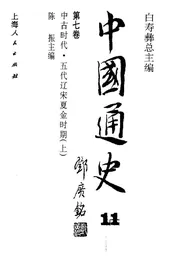 白寿彝总主编
中國通史
11
第七卷
中古时代·五代辽宋夏金时期(上)
陈振主编
鄧廣銘
上海人民出版社